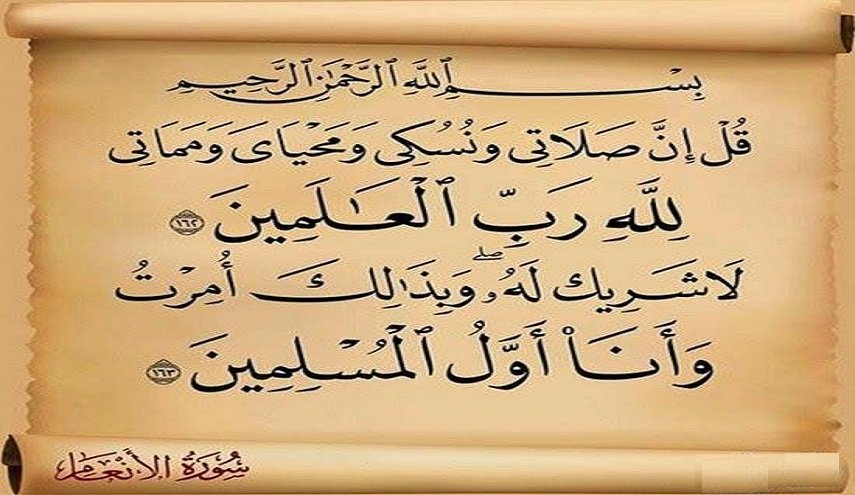 بِسْمِ ٱللَّهِ ٱلرَّحْمَٰنِ ٱلرَّحِيمِ
قُلْ إِنَّ صَلَاتِى وَنُسُكِى وَمَحْيَاىَ وَمَمَاتِى
لِلَّهِ رَبِّ ٱلْعَٰلَمِينَ ١٦٢
لَا شَرِيكَ لَهُۥ ۖ وَبِذَٰلِكَ أُمِرْتُ
وَأَنَا۠ أَوَّلُ ٱلْمُسْلِمِينَ ١٦٣
سُورَةُ الأَنْعَام